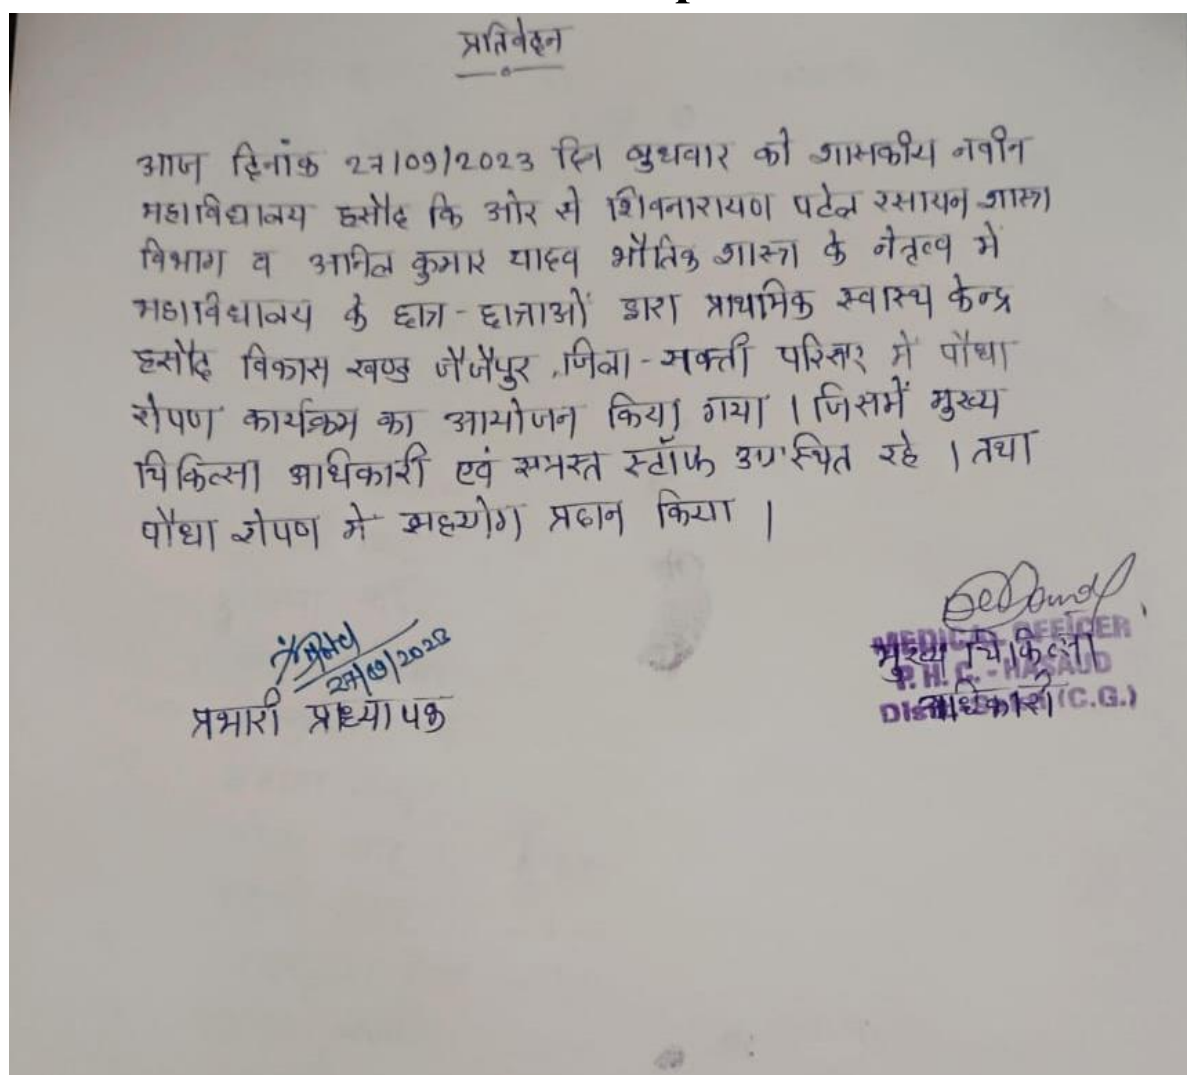 प्रतिवेदन
आज दिनांक 27/09/2023 दिन बुधवार को शासकीय नवीन
महाविद्यालय हसौद कि ओर से शिवनारायण पटेल रसायन शास्त्र
विभाग व अनिल कुमार यादव भौतिक शास्त्र के नेतृत्व में
महाविद्यालय के छात्र-छात्राओं द्वारा प्राथमिक स्वास्थ केन्द्र
हसौद विकास खण्ड जैजैपुर, जिला-सक्ती परिसर में पौधा
रोपण कार्यक्रम का आयोजन किया गया । जिसमें मुख्य
चिकित्सा अधिकारी एवं समस्त स्टॉफ उपस्थित रहे । तथा
पौधा रोपण में सहयोग प्रदान किया ।
27/09/2023
प्रभारी प्राध्यापक
MEDICAL OFFICER
मुख्य चिकित्सा
P.H.C.-HASAUD
अधिकारी
(C.G.)